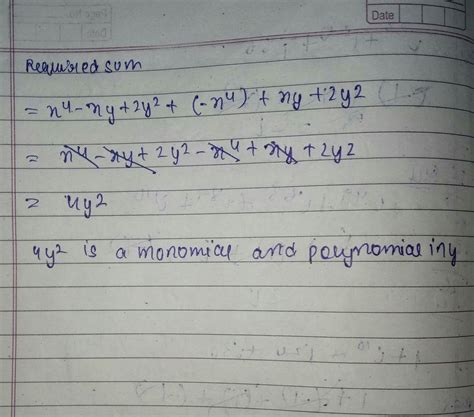 Date
Required sum
= x⁴ - xy + 2y² + (-x⁴) + xy + 2y2
= x⁴ - xy + 2y² - x⁴ + xy + 2y2
= 4y²
4y² is a monomial and polynomial in y